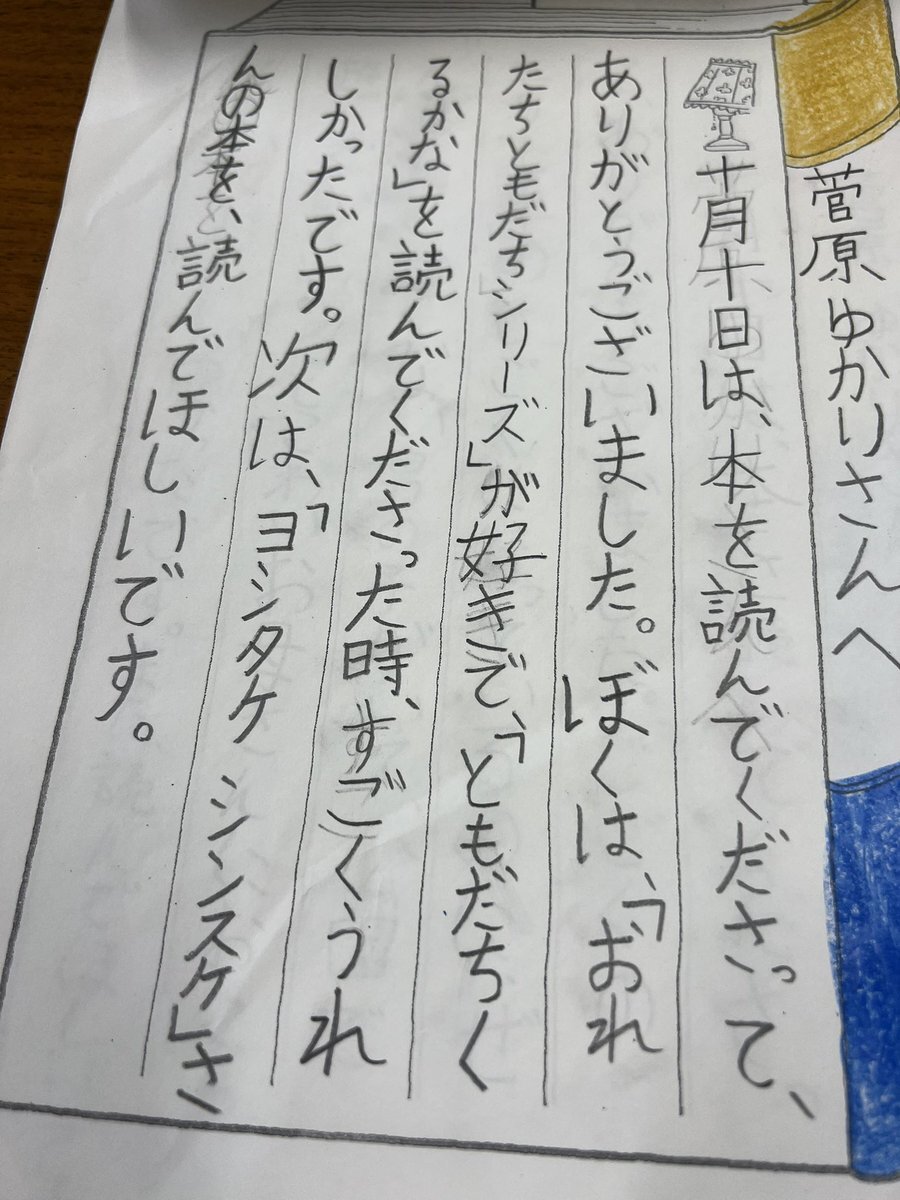 菅原ゆかりさんへ
十月十日は、本を読んでくださって、
ありがとうございました。ぼくは、「おれ
たちともだちシリーズ」が好きで、「ともだちく
るかな」を読んでくださった時、すごくうれ
しかったです。次は、「ヨシタケ シンスケ」さ
んの本を、読んでほしいです。